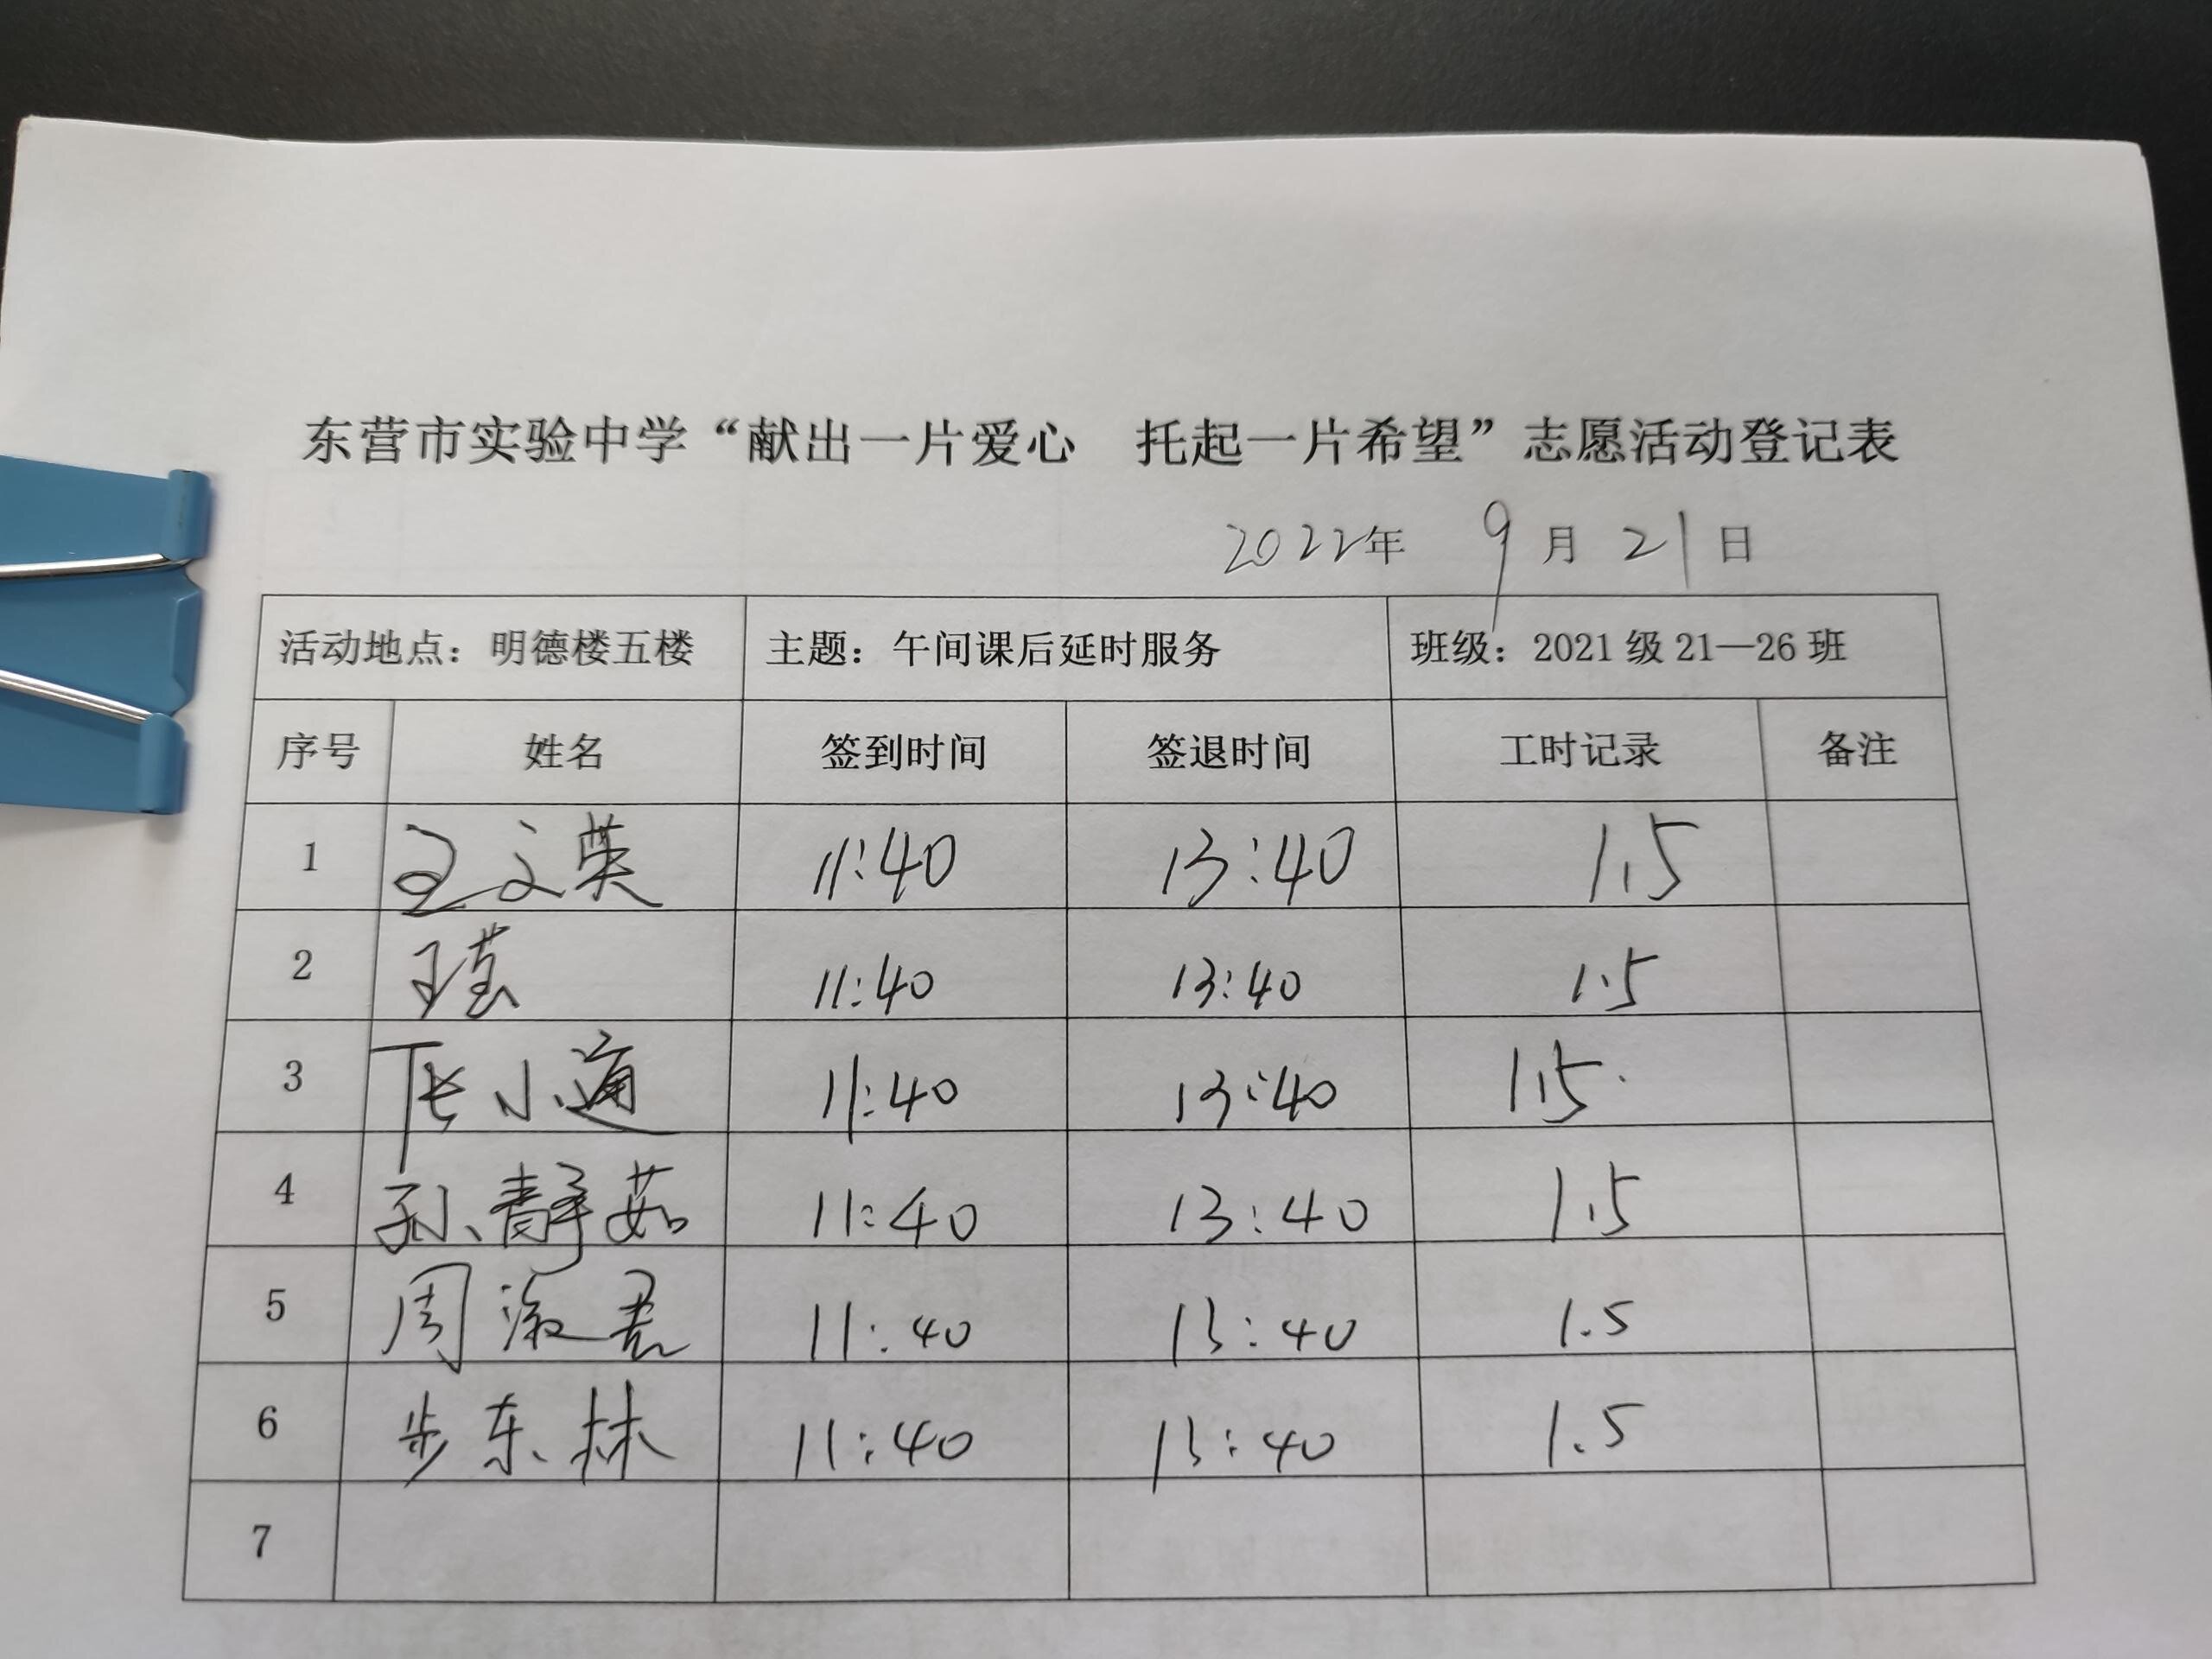 东营市实验中学“献出一片爱心 托起一片希望”志愿活动登记表
2022年 9月21日
活动地点：明德楼五楼 主题：午间课后延时服务 班级：2021级21—26班
序号 姓名 签到时间 签退时间 工时记录 备注
1 王文英 11:40 13:40 1.5
2 11:40 13:40 1.5
3 张小通 11:40 13:40 1.5
4 孙静茹 11:40 13:40 1.5
5 周淑君 11:40 13:40 1.5
6 步东林 11:40 13:40 1.5
7